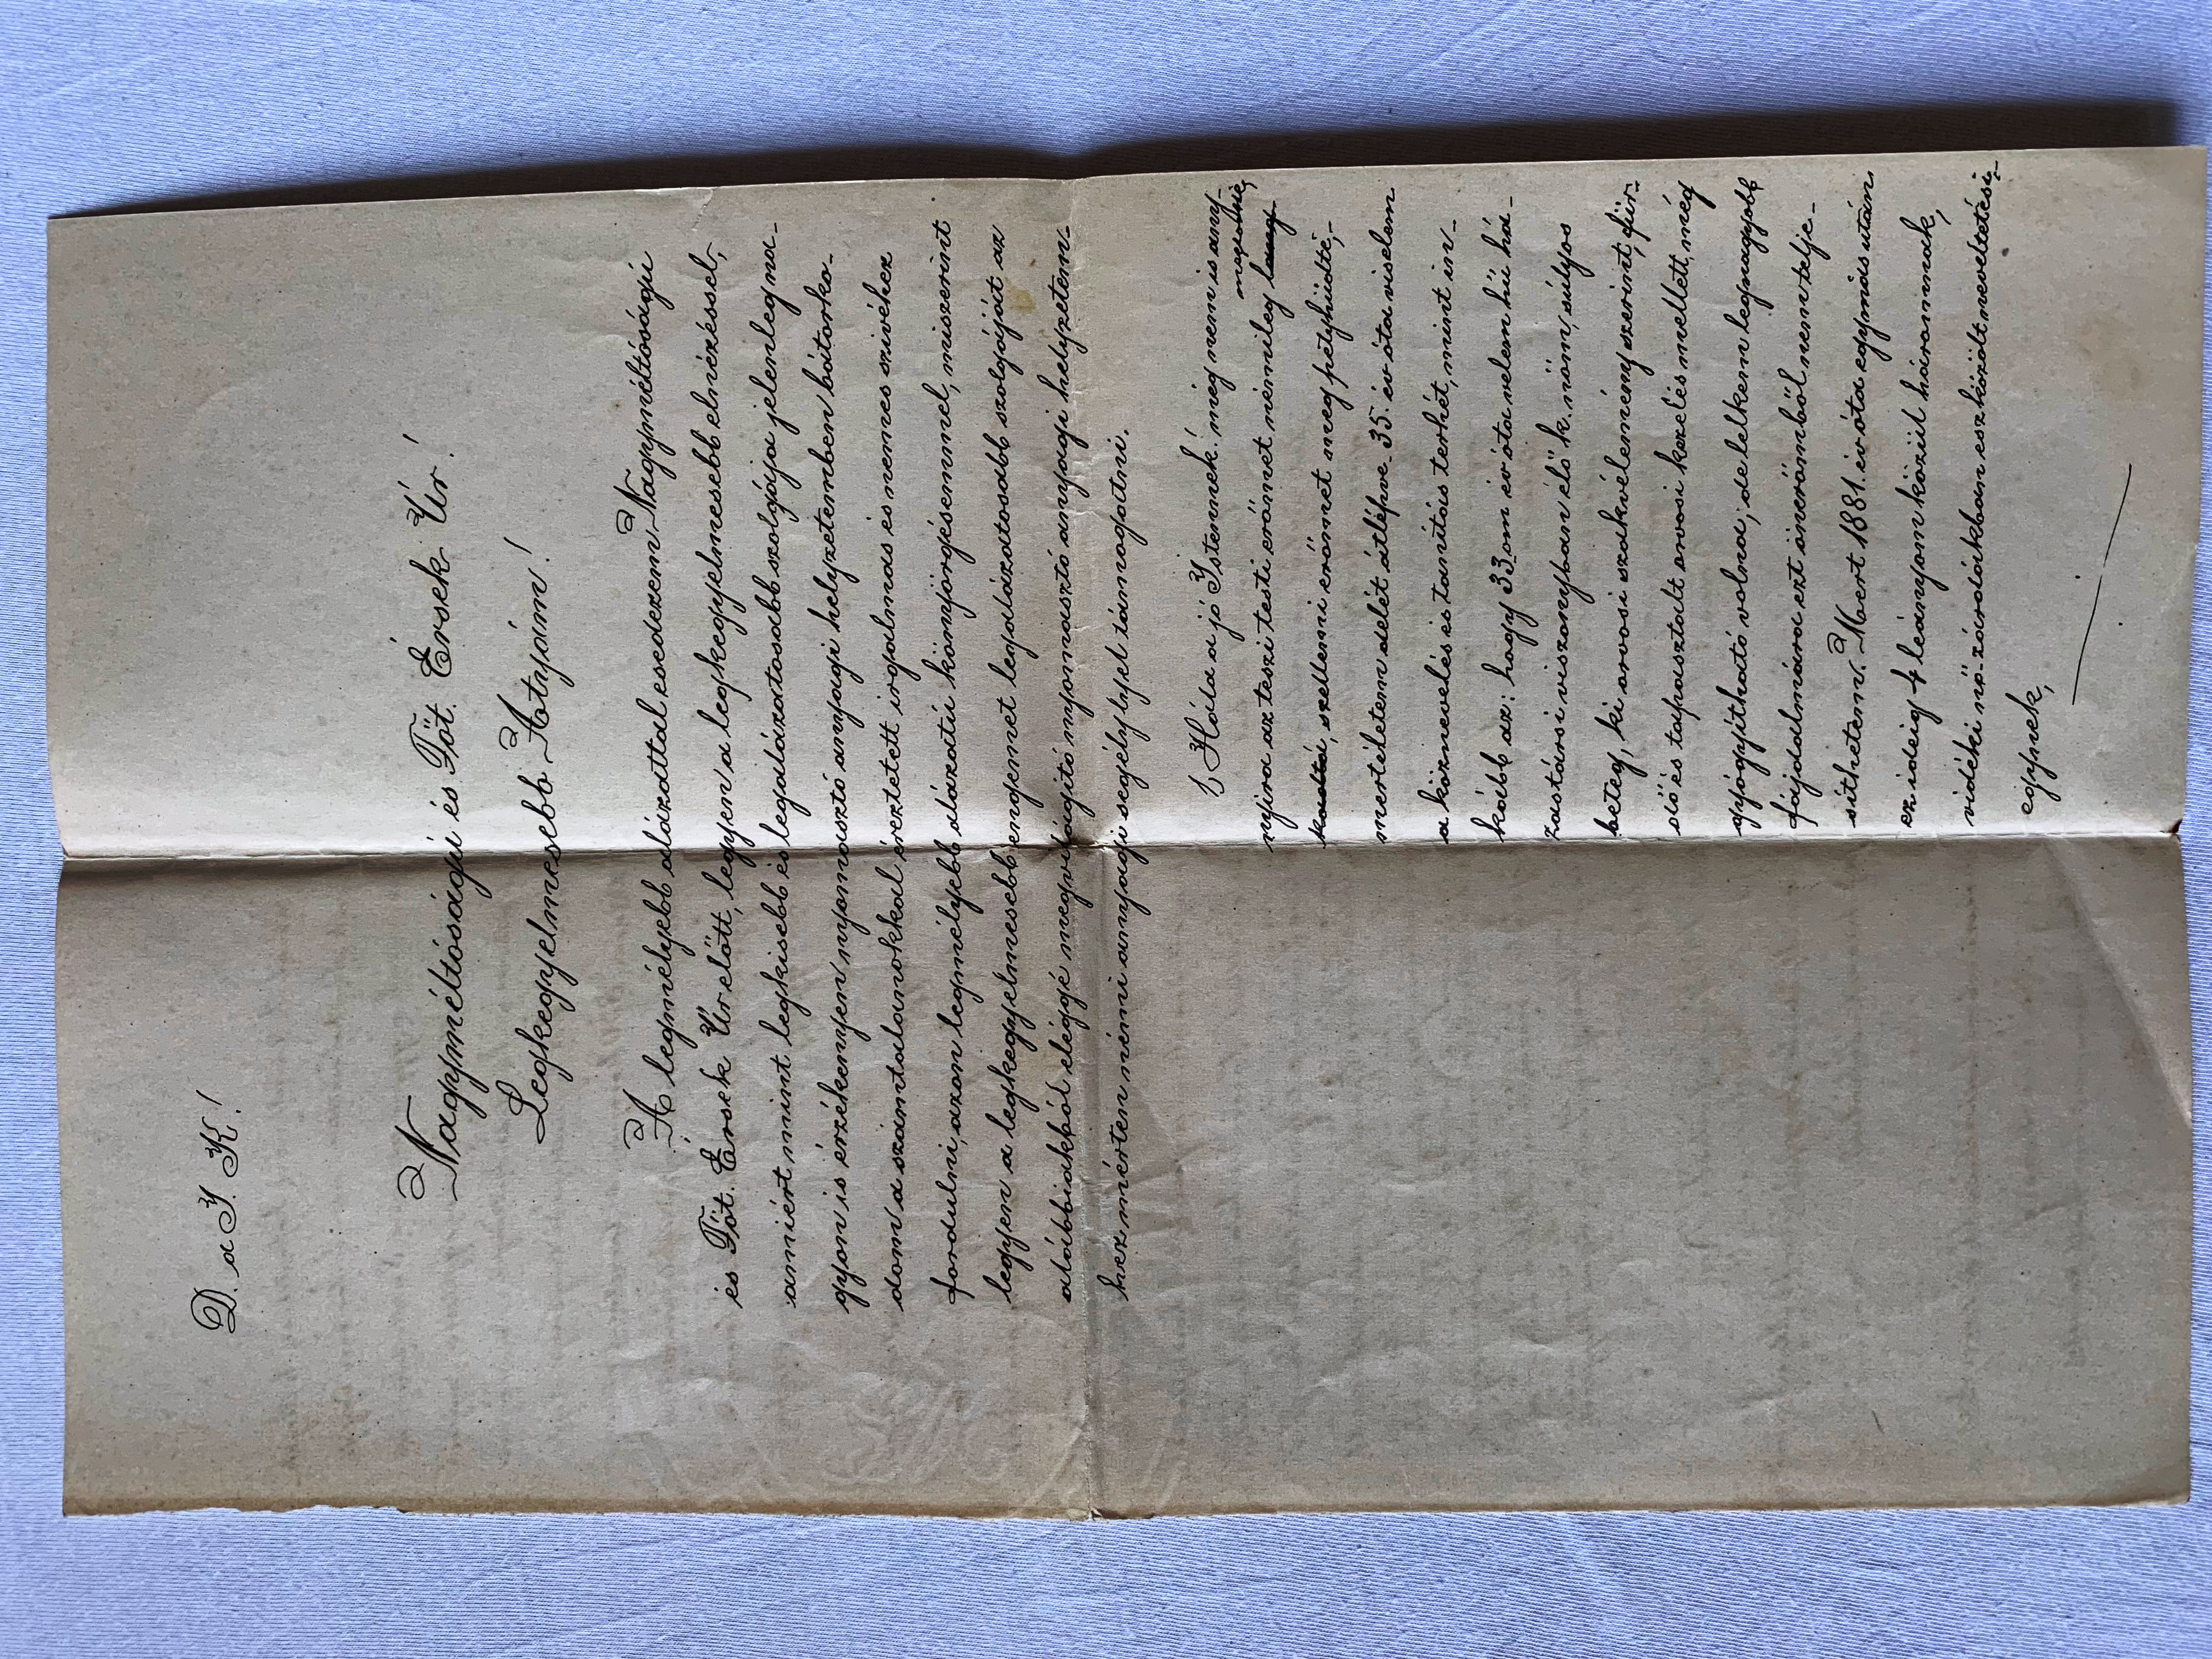 D. a J. K!
Nagyméltóságú és Főt. Érsek Úr!
Legkegyelmesebb Atyám!
A legmélyebb alázattal esedezem Nagyméltóságú
és Főt. Érsek Úr előtt, legyen a legkegyelmesebb elnézéssel,
amiért mint legkisebb és legalázatosabb szolgája jelenleg na-
gyon is érzékenyen nyomasztó anyagi helyzetemben bátorko-
dom a számtalanokkal éreztetett irgalmas és nemes szivéhez
fordulni, azon legmélyebb alázatú könyörgésemmel, miszerint
legyen a legkegyelmesebb engemet legalázatosabb szolgáját az
alábbiakból eléggé megvilágitó nyomasztó anyagi helyzetem-
hez mérten némi anyagi segélylyel támogatni.
1, Hála a jó Istennek! még nem is any-
nyira az teszi testi erőmet némileg lang-
kadtá, szellemi erőmet meg petyhüdté,-
mert életem delét átlépve 35. év óta viselem
a köznevelés és tanítás terhét, mint in-
kább az: hogy 33-om év óta velem hű há-
zastársi viszonyban élő k. nőm, súlyos
beteg, ki orvosi szakvélemény szerint, für-
dő és tapasztalt orvosi kezelés mellett, még
gyógyítható volna; de lelkem legnagyobb
fájdalmára ezt önerőmből nem telje-
síthetem. Mert 1881. év óta egymás után
ez ideig 4 leányom közül háromnak,
vidéki nő-zárdákban eszközölt neveltetési,-
egynek,